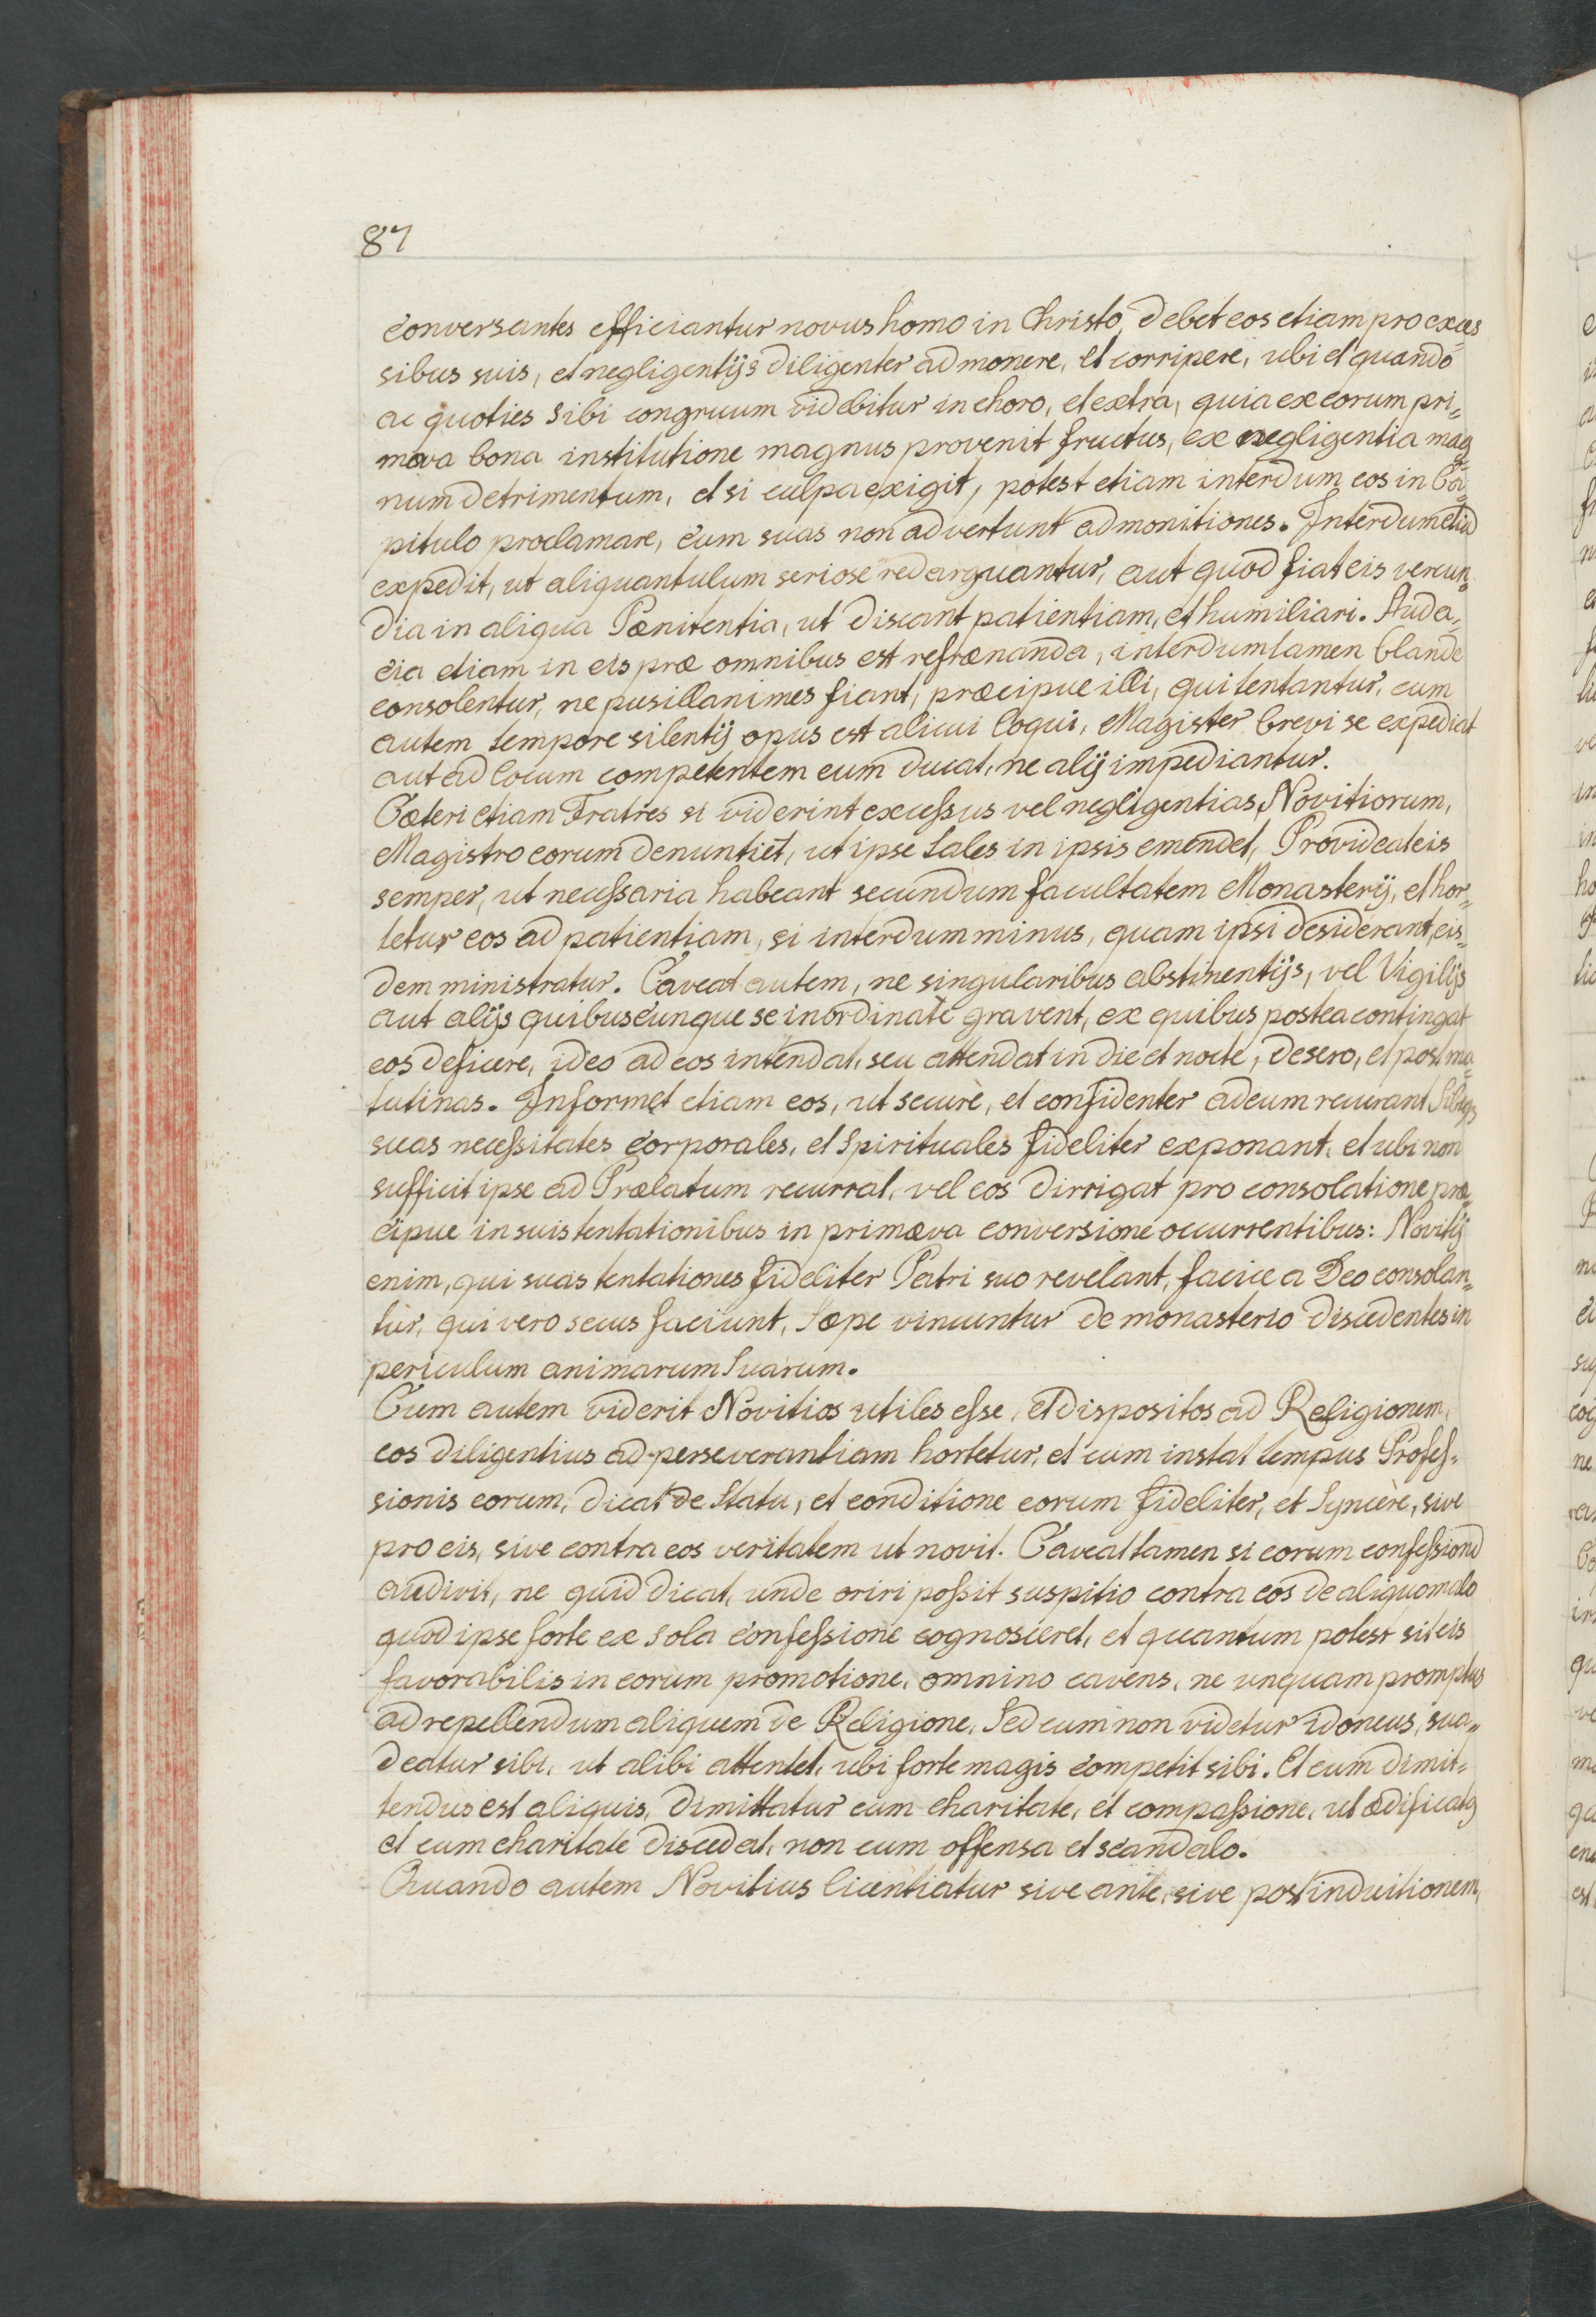 87
conversantes efficiantur novus homo in Christo, debet eos etiam pro exces
sibus suis, et negligentijs diligenter admonere, et corripere, ubi et quando
ac quoties sibi congruum videbitur in choro, et extra, quia ex eorum pri„
mæva bona institutione magnus provenit fructus, ex negligentia mag„
num detrimentum, et si culpa exigit, potest etiam interdum eos in Ca„
pitulo proclamare, cum suas non advertunt admonitiones. Interdum etiā
expedit, ut aliquantulum seriose redarguantur, aut quod fiat eis verecun„
dia in aliqua Pœnitentia, ut discant patientiam, et humiliari. Auda„
cia etiam in eis præ omnibus est refrænanda, interdum tamen blande
consolentur, ne pusillanimes fiant, præcipue illi, qui tentantur, cum
autem tempore silentij opus est alicui loqui, Magister brevi se expediat
aut ad locum competentem eum ducat, ne alij impediantur.
Cæteri etiam Fratres si viderint excessus vel negligentias Novitiorum,
Magistro eorum denuntiēt, ut ipse tales in ipsis emendet, Provideat eis
semper, ut necessaria habeant secundum facultatem Monasterij, et hor„
tetur eos ad patientiam, si interdum minus, quam ipsi desiderant, eis„
dem ministratur. Caveat autem, ne singularibus abstinentijs, vel Vigilijs
aut alijs quibuscunque se inordinatè gravent, ex quibus postea contingat
eos deficere, ideo ad eos intendat, seu attendat in die et nocte, de sero, et post ma„
tutinas. Informet etiam eos, ut securè, et confidenter ad eum recurant sibiq3
suas necessitates corporales, et spirituales fideliter exponant, et ubi non
sufficit ipse ad Prælatum recurrat, vel eos dirrigat pro consolatione præ„
cipue in suis tentationibus in primæva conversione occurrentibus: Novitij
enim, qui suas tentationes fideliter Patri suo revelant, facile a Deo consolan„
tur, qui vero secus faciunt, sæpe vincuntur de monasterio discedentes in
periculum animarum suarum.
Cum autem viderit Novitios utiles esse, et dispositos ad Religionem,
eos diligentius ad perseverantiam hortetur, et cum instat tempus Profes„
sionis eorum, dicat de statu, et conditione eorum fideliter, et syncère, sive
pro eis, sive contra eos veritatem ut novit. Caveat tamen si eorum confessionē
audivit, ne quid dicat, unde oriri possit suspitio contra eos de aliquo malo
quod ipse forte ex sola confessione cognosceret, et quantum potest sit eis
favorabilis in eorum promotione, omnino cavens, ne unquam promptus
ad repellendum aliquem de Religione, Sed cum non videtur idoneus, sua„
deatur sibi, ut alibi attentet, ubi forte magis competit sibi. Et cum dimit„
tendus est aliquis, dimittatur cum charitate, et compassione, ut ædificatq
et cum charitate discedat, non cum offensa et scandalo.
Quando autem Novitius licentiatur sive ante, sive post induitionem,